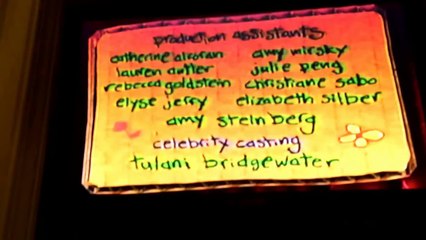 production assistants
catherine alcoran amy mirsky
lauren cutler julie peng
rebecca goldstein christiane sabo
elyse jerry elizabeth silber
amy steinberg
celebrity casting
tulani bridgewater